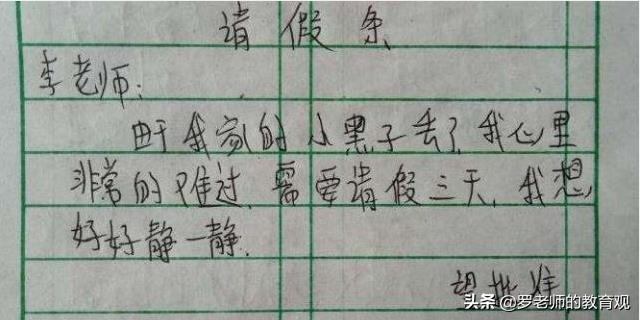 请假条
李老师:
由于我家的小黑子丢了,我心里
非常的难过,需要请假三天,我想
好好静一静.
望批准
头条 @罗老师的教育观